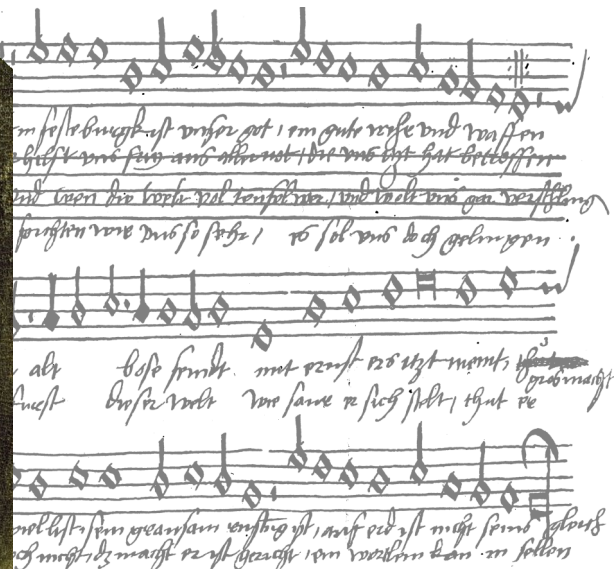 in feste burgk ist unser got / ein gute wehr und waffen
hilft uns frey aus aller not / die uns itzt hat betroffen
und wen die welt vol teufel wer / und wolt uns gar verschling
forchten wir uns so sehr / es sol uns doch gelingen
alt bose feindt mit ernst ers itzt meint,
gros macht
furst dieser welt wie saur er sich stelt / thut er
viel list / sein grausam rustung ist / auf erd ist nicht seins gleich
nicht / dz macht er ist gericht / ein wortlein kan in fellen